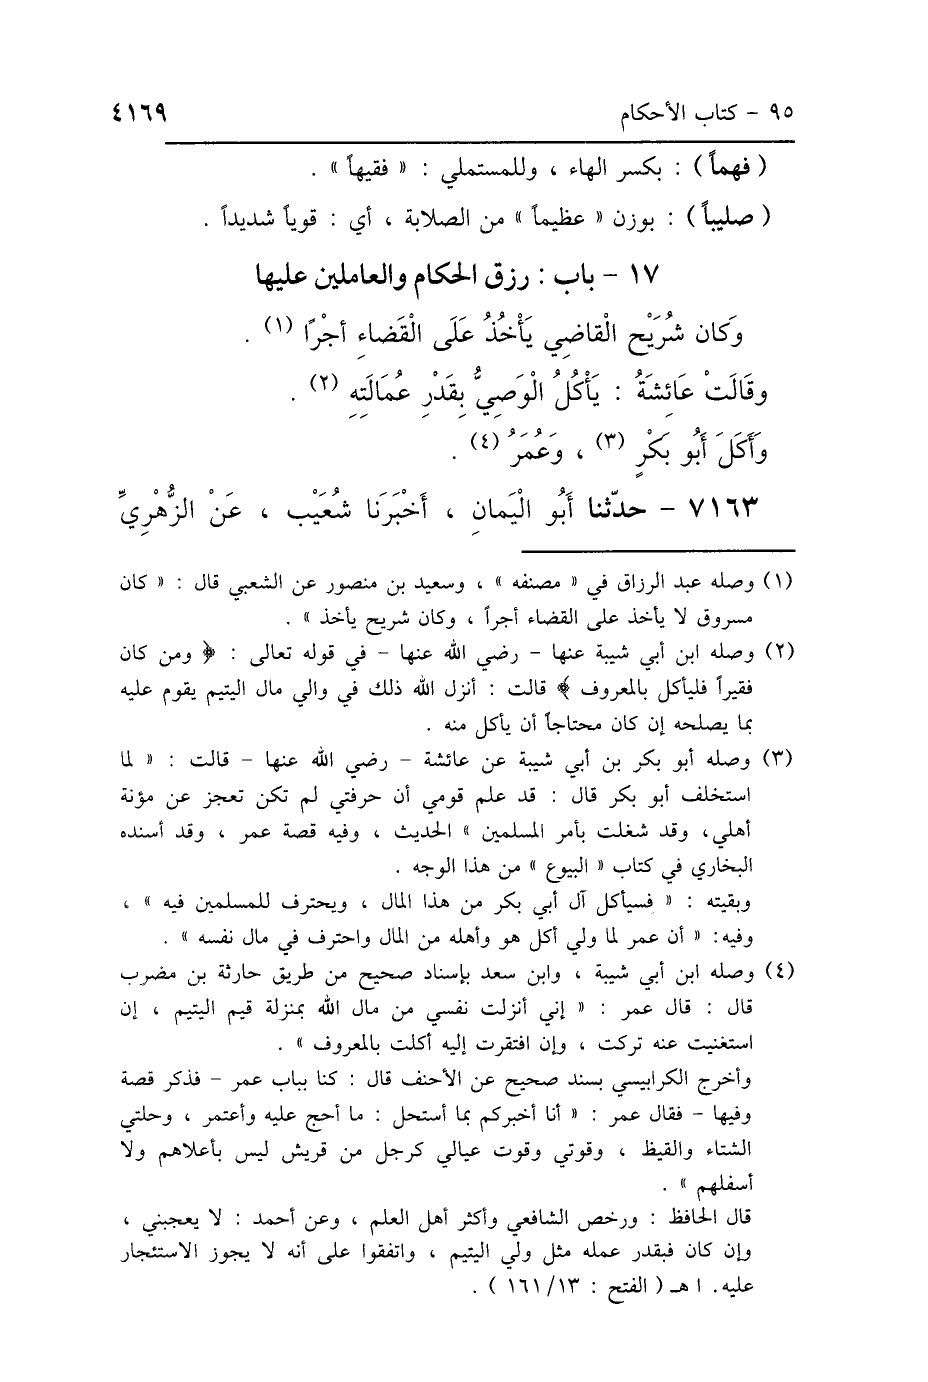 ٩٥ - كتاب الأحكام ٤١٦٩
( فهماً ) : بكسر الهاء ، وللمستملي : « فقيهاً » .
( صليباً ) : بوزن « عظيماً » من الصلابة ، أي : قوياً شديداً .
١٧ - باب : رزق الحكام والعاملين عليها
وَكان شُرَيْح الْقاضِي يَأْخُذُ عَلَى الْقَضاءِ أجْرًا (١) .
وقَالَتْ عَائِشَةُ : يَأْكُلُ الْوَصِيُّ بِقَدْرِ عُمَالَتِهِ (٢) .
وَأَكَلَ أَبُو بَكْرٍ (٣) ، وَعُمَرُ (٤) .
٧١٦٣ - حدّثنا أَبُو الْيَمانِ ، أَخْبَرَنَا شُعَيْب ، عَنْ الزُّهْرِيِّ
(١) وصله عبد الرزاق في « مصنفه » ، وسعيد بن منصور عن الشعبي قال : « كان
مسروق لا يأخذ على القضاء أجراً ، وكان شريح يأخذ » .
(٢) وصله ابن أبي شيبة عنها - رضي الله عنها - في قوله تعالى : ﴿ ومن كان
فقيراً فليأكل بالمعروف ﴾ قالت : أنزل الله ذلك في والي مال اليتيم يقوم عليه
بما يصلحه إن كان محتاجاً أن يأكل منه .
(٣) وصله أبو بكر بن أبي شيبة عن عائشة - رضي الله عنها - قالت : « لما
استخلف أبو بكر قال : قد علم قومي أن حرفتي لم تكن تعجز عن مؤنة
أهلي، وقد شغلت بأمر المسلمين » الحديث ، وفيه قصة عمر ، وقد أسنده
البخاري في كتاب « البيوع » من هذا الوجه .
وبقيته : « فسيأكل آل أبي بكر من هذا المال ، ويحترف للمسلمين فيه » ،
وفيه: « أن عمر لما ولي أكل هو وأهله من المال واحترف في مال نفسه » .
(٤) وصله ابن أبي شيبة ، وابن سعد بإسناد صحيح من طريق حارثة بن مضرب
قال : قال عمر : « إني أنزلت نفسي من مال الله بمنزلة قيم اليتيم ، إن
استغنيت عنه تركت ، وإن افتقرت إليه أكلت بالمعروف » .
وأخرج الكرابيسي بسند صحيح عن الأحنف قال : كنا بباب عمر - فذكر قصة
وفيها - فقال عمر : « أنا أخبركم بما أستحل : ما أحج عليه وأعتمر ، وحلتي
الشتاء والقيظ ، وقوتي وقوت عيالي كرجل من قريش ليس بأعلاهم ولا
أسفلهم » .
قال الحافظ : ورخص الشافعي وأكثر أهل العلم ، وعن أحمد : لا يعجبني ،
وإن كان فبقدر عمله مثل ولي اليتيم ، واتفقوا على أنه لا يجوز الاستئجار
عليه. ا هـ ( الفتح : ١٦١/١٣ ) .